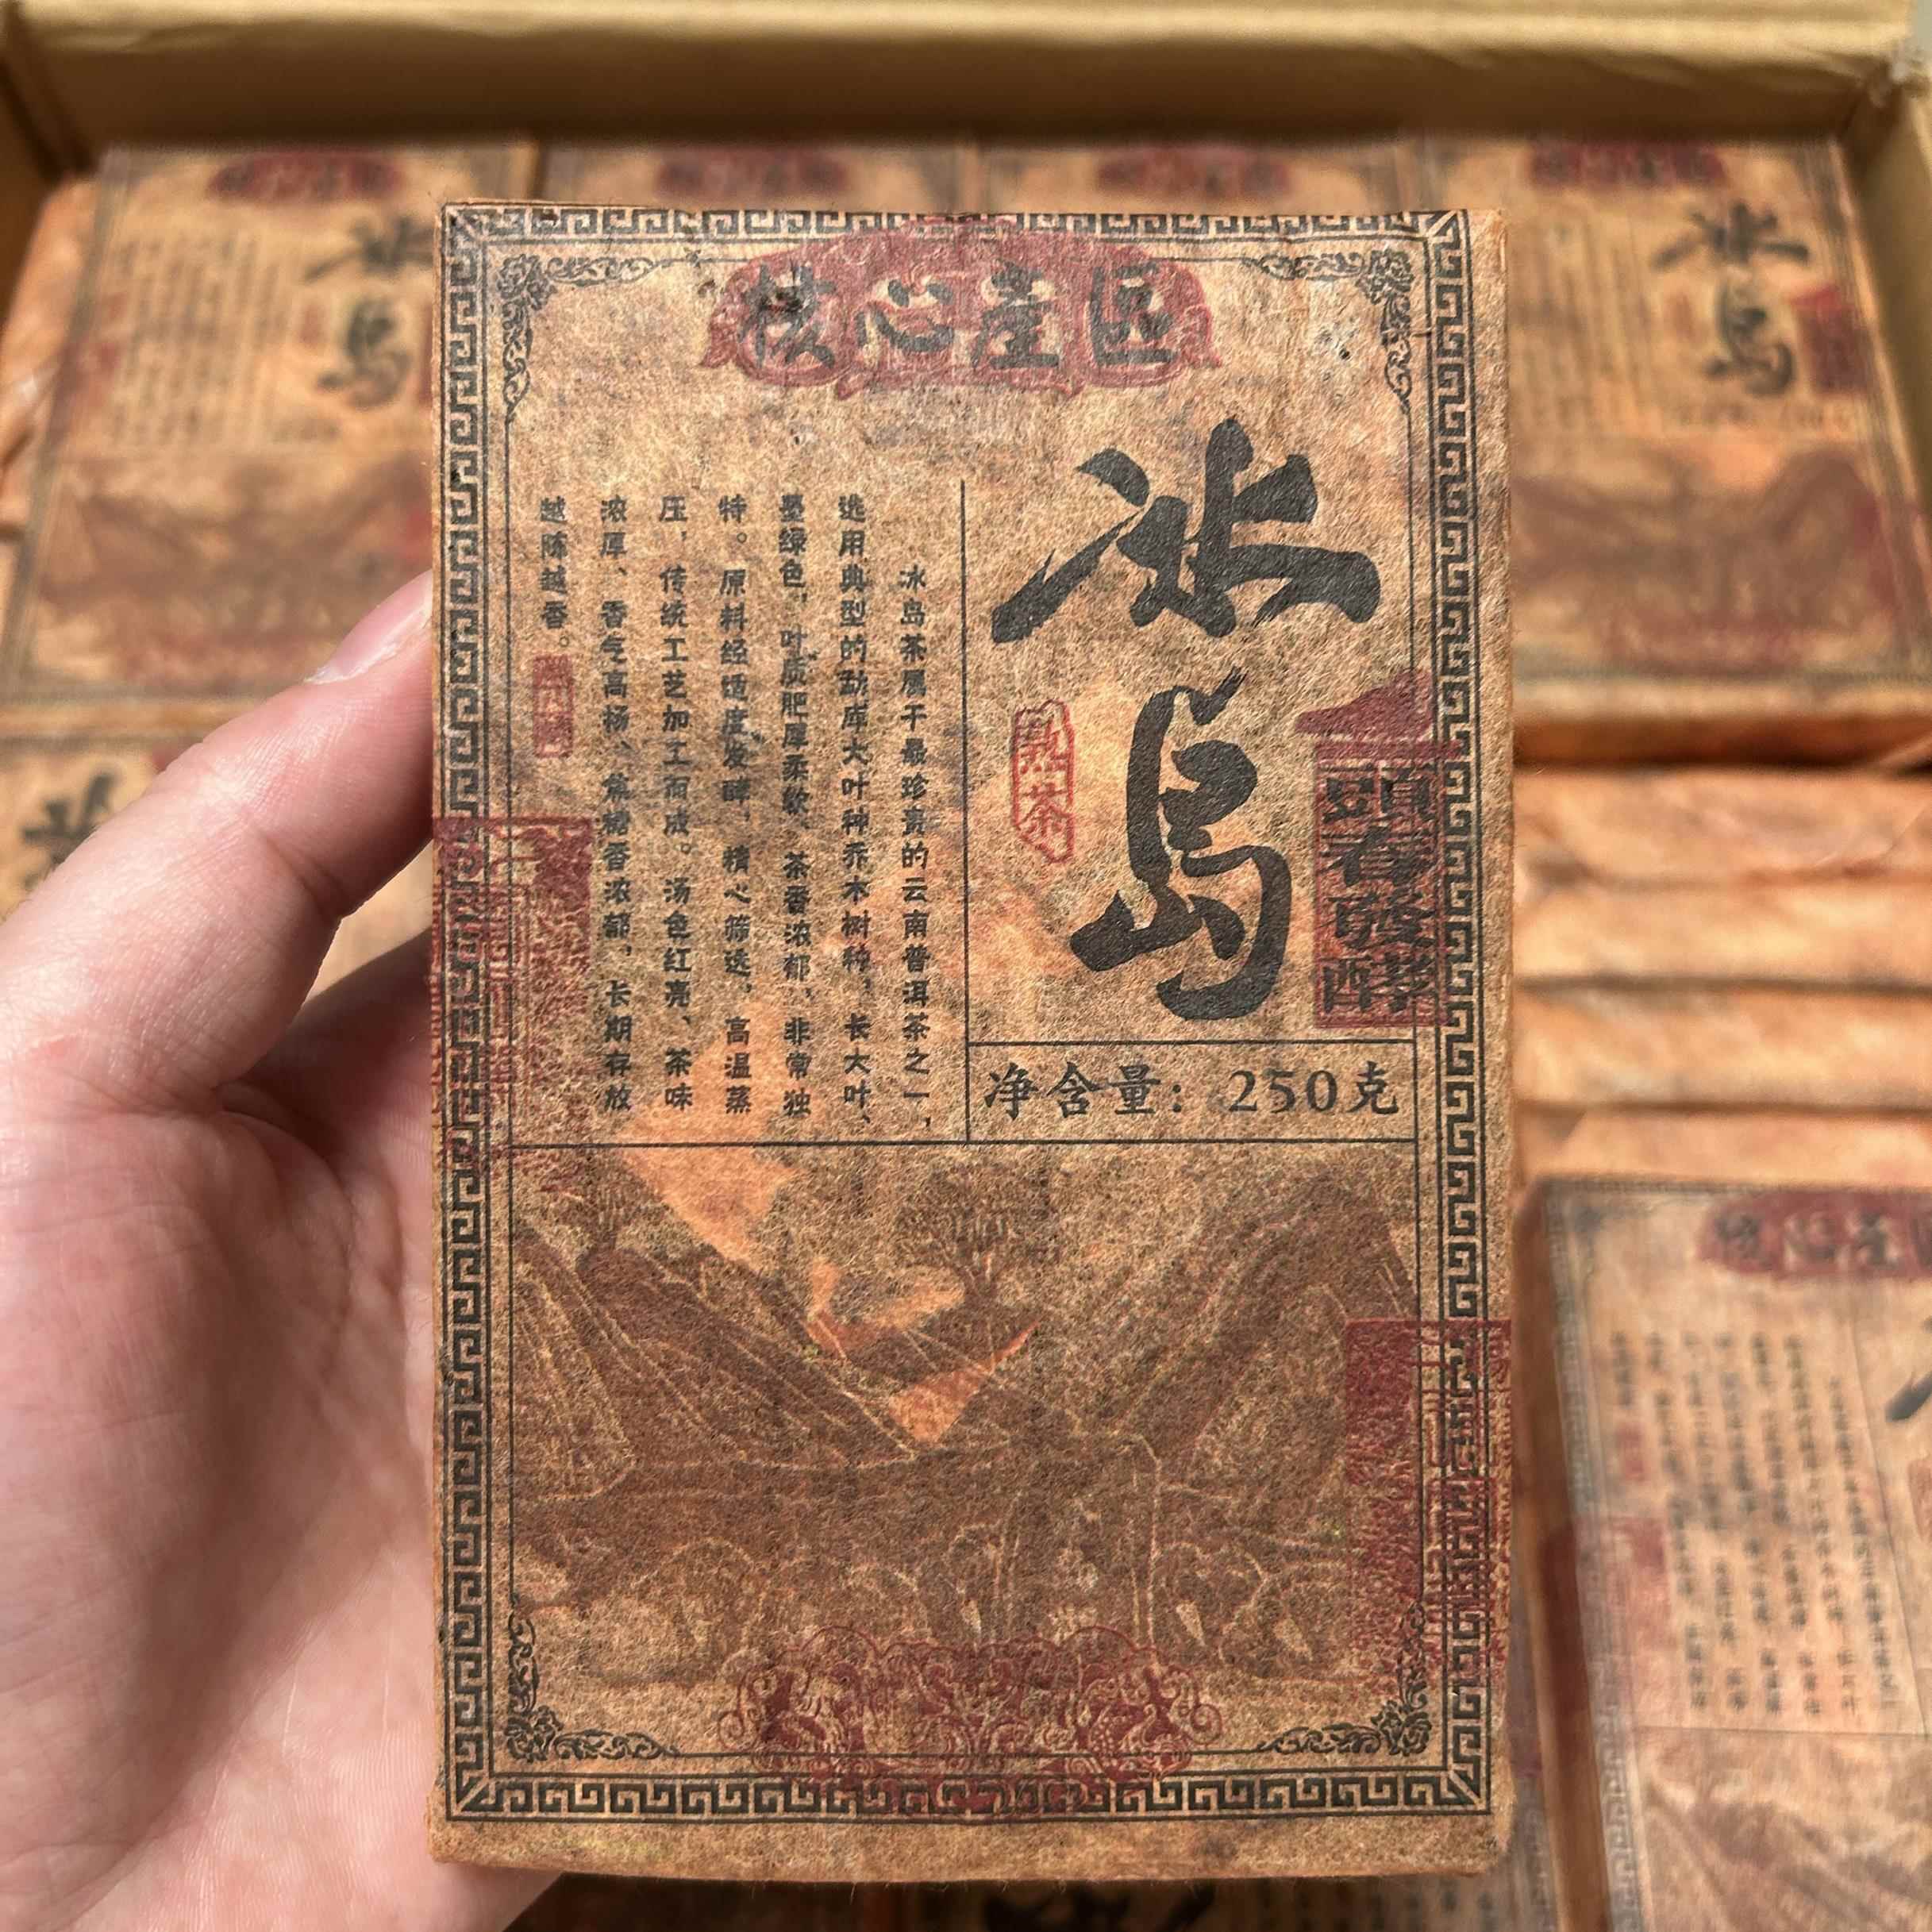 核心產区
冰岛
熟茶
頭春發酵
净含量：250克
冰岛茶属于最珍贵的云南普洱茶之一，
选用典型的勐库大叶种乔木树种，长大叶、
墨绿色，叶质肥厚柔软、茶香浓郁，非常独
特。原料经适度发酵，精心筛选，高温蒸
压，传统工艺加工而成。汤色红亮、茶味
浓厚、香气高杨、焦糖香浓郁，长期存放
越陈越香。